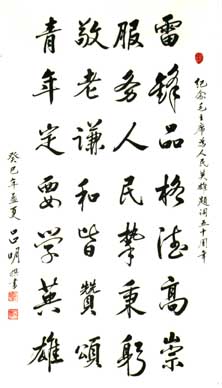 纪念毛主席为人民英雄题词五十周年
雷锋品格德高崇
服务人民挚秉躬
敬老谦和皆讚頌
青年定要学英雄
癸巳年孟夏吕明书